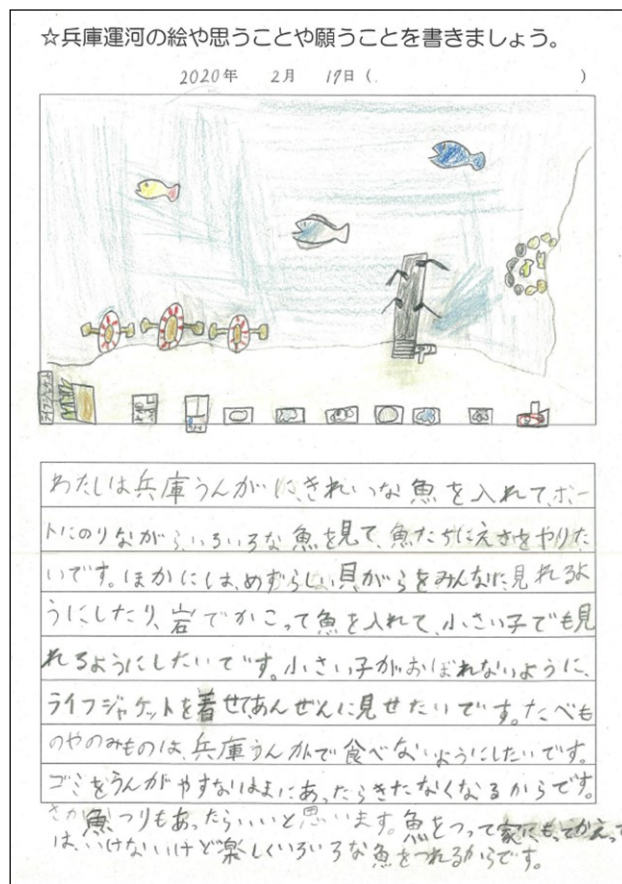 ☆兵庫運河の絵や思うことや願うことを書きましょう。
2020年 2月 19日( )
わたしは兵庫うんがに、きれいな魚を入れて、ボー
トにのりながら、いろいろな魚を見て、魚たちにえさをやりた
いです。ほかには、めずらしい貝がらをみんなに見れるよ
うにしたり、岩でかこって魚を入れて、小さい子でも見
れるようにしたいてす。小さい子がおぼれないように、
ライフジャケットを着せて、あんぜんに見せたいです。たべも
のやのみものは、兵庫うんがで食べないようにしたいです。
ゴミをうんがやすなはまにあったらきたなくなるからです。
魚つりもあったらいいと思います。魚をつって家にもってかえって
は、いけないけど楽しくいろいろな魚をつれるからです。